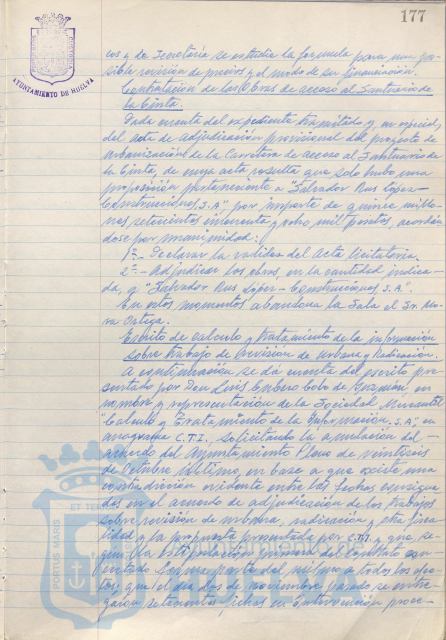 177
AYUNTAMIENTO DE HUELVA
cos y de Secretaría se estudie la fórmula para una po-
sible revisión de precios y el modo de su financiación.
Contratación de las Obras de acceso al Santuario de
la Cinta.
Dada cuenta del expediente tramitado y en especial
del acta de adjudicación provisional del proyecto de
urbanización de la Carretera de acceso al Santuario de
la Cinta, de cuya acta resulta que solo hubo una
proposición perteneciente a "Salvador Rus López-
Construcciones S.A" por importe de quince millo-
nes setecientas ocho mil pesetas, acordán
dose por unanimidad:
1º.- Declarar la validez del Acta licitatoria.
2º.- Adjudicar las obras, en la cantidad indica-
da, a "Salvador Rus López-Construcciones S.A".
En estos momentos abandona la Sala el Sr. Mo-
ra Ortiga.
Escrito de Cálculo y Tratamiento de la Información
sobre trabajo de Revisión de Urbana y Radicación.
A continuación se dá cuenta del escrito pre-
sentado por Don Luis Cobo de Guzmán, en
nombre y representación de la Sociedad Mercantil
"Cálculo y Tratamiento de la Información. S.A", en
anagrama C.T.I., solicitando la anulación del
acuerdo del Ayuntamiento Pleno de veintiseis
de Octubre último, en base a que existe una
contradicción evidente entre las fechas
das en el acuerdo de adjudicación de los trabajos
sobre revisión de urbana, radicación y otra fina-
lidad y la propuesta presentada por C.T.I. y que, se-
gún la estipulación primera del Contrato
forma parte del mismo a todos los efec-
tos, que el día dos de noviembre pasado se entre-
garon setecientas fichas en Intervención, proce-
PORTUS MARIS
ET TE